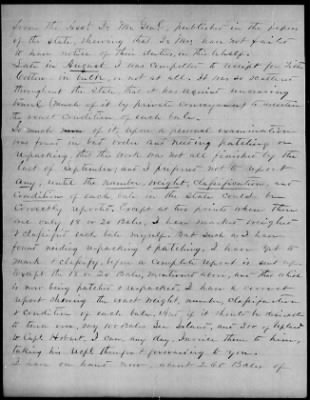 from the Asst. Dr. Mr. Genl., published in the papers
of the State, showing that so they have not failed
to have notice of their duties, in this
Late in August I was compelled to receipt for this
Cotton, in bulk, or not at all. It was so scattered
throughout the State, that it has required unceasing
travel (much of it by private conveyance) to ascertain
the exact condition of each bale.
So much of it, upon a personal examination
was found in bad order and needing patching or
repacking, that this work was not all finished by the
last of September, and I preferred not to report
any, until the number, weight, classification, and
condition of each bale in the State could be
correctly reported. Except at two points where there
are only 18 or 20 Bales, I have marked weighed
& classified each bale myself. But such as I have
found needing repacking & patching, I have yet to
mark & classify, before a complete report is sent upon
Except the 18 or 20 Bales, mentioned above, and that which
is now being patched & repacked, I have a correct
report showing the exact weight, number, classification
& condition of each bale. And if it should be decided
to turn over, my 100 Bales Sea Island, and 200 of Upland
to Capt Hobart, I can any day, invoice them to him,
taking his rcpt therefor & forwarding to you.
I have on hand now, about 260 Bales of